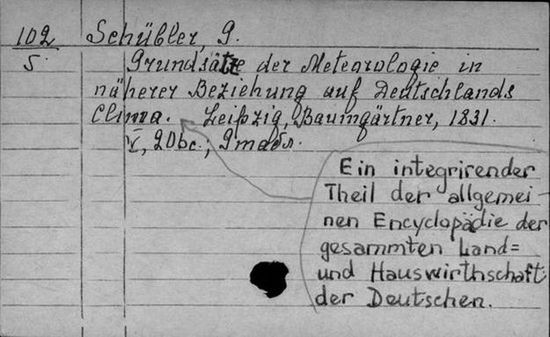 102
5.
Schübler, G.
Grundsätze der Meteorologie in
näherer Beziehung auf Deutschlands
Clima. Leipzig, Baumgärtner, 1831.
V, 20 bc.;
Ein integrirender
Theil der allgemei
nen Encyclopädie der
gesammten Land=
und Hauswirthschaft
der Deutschen.